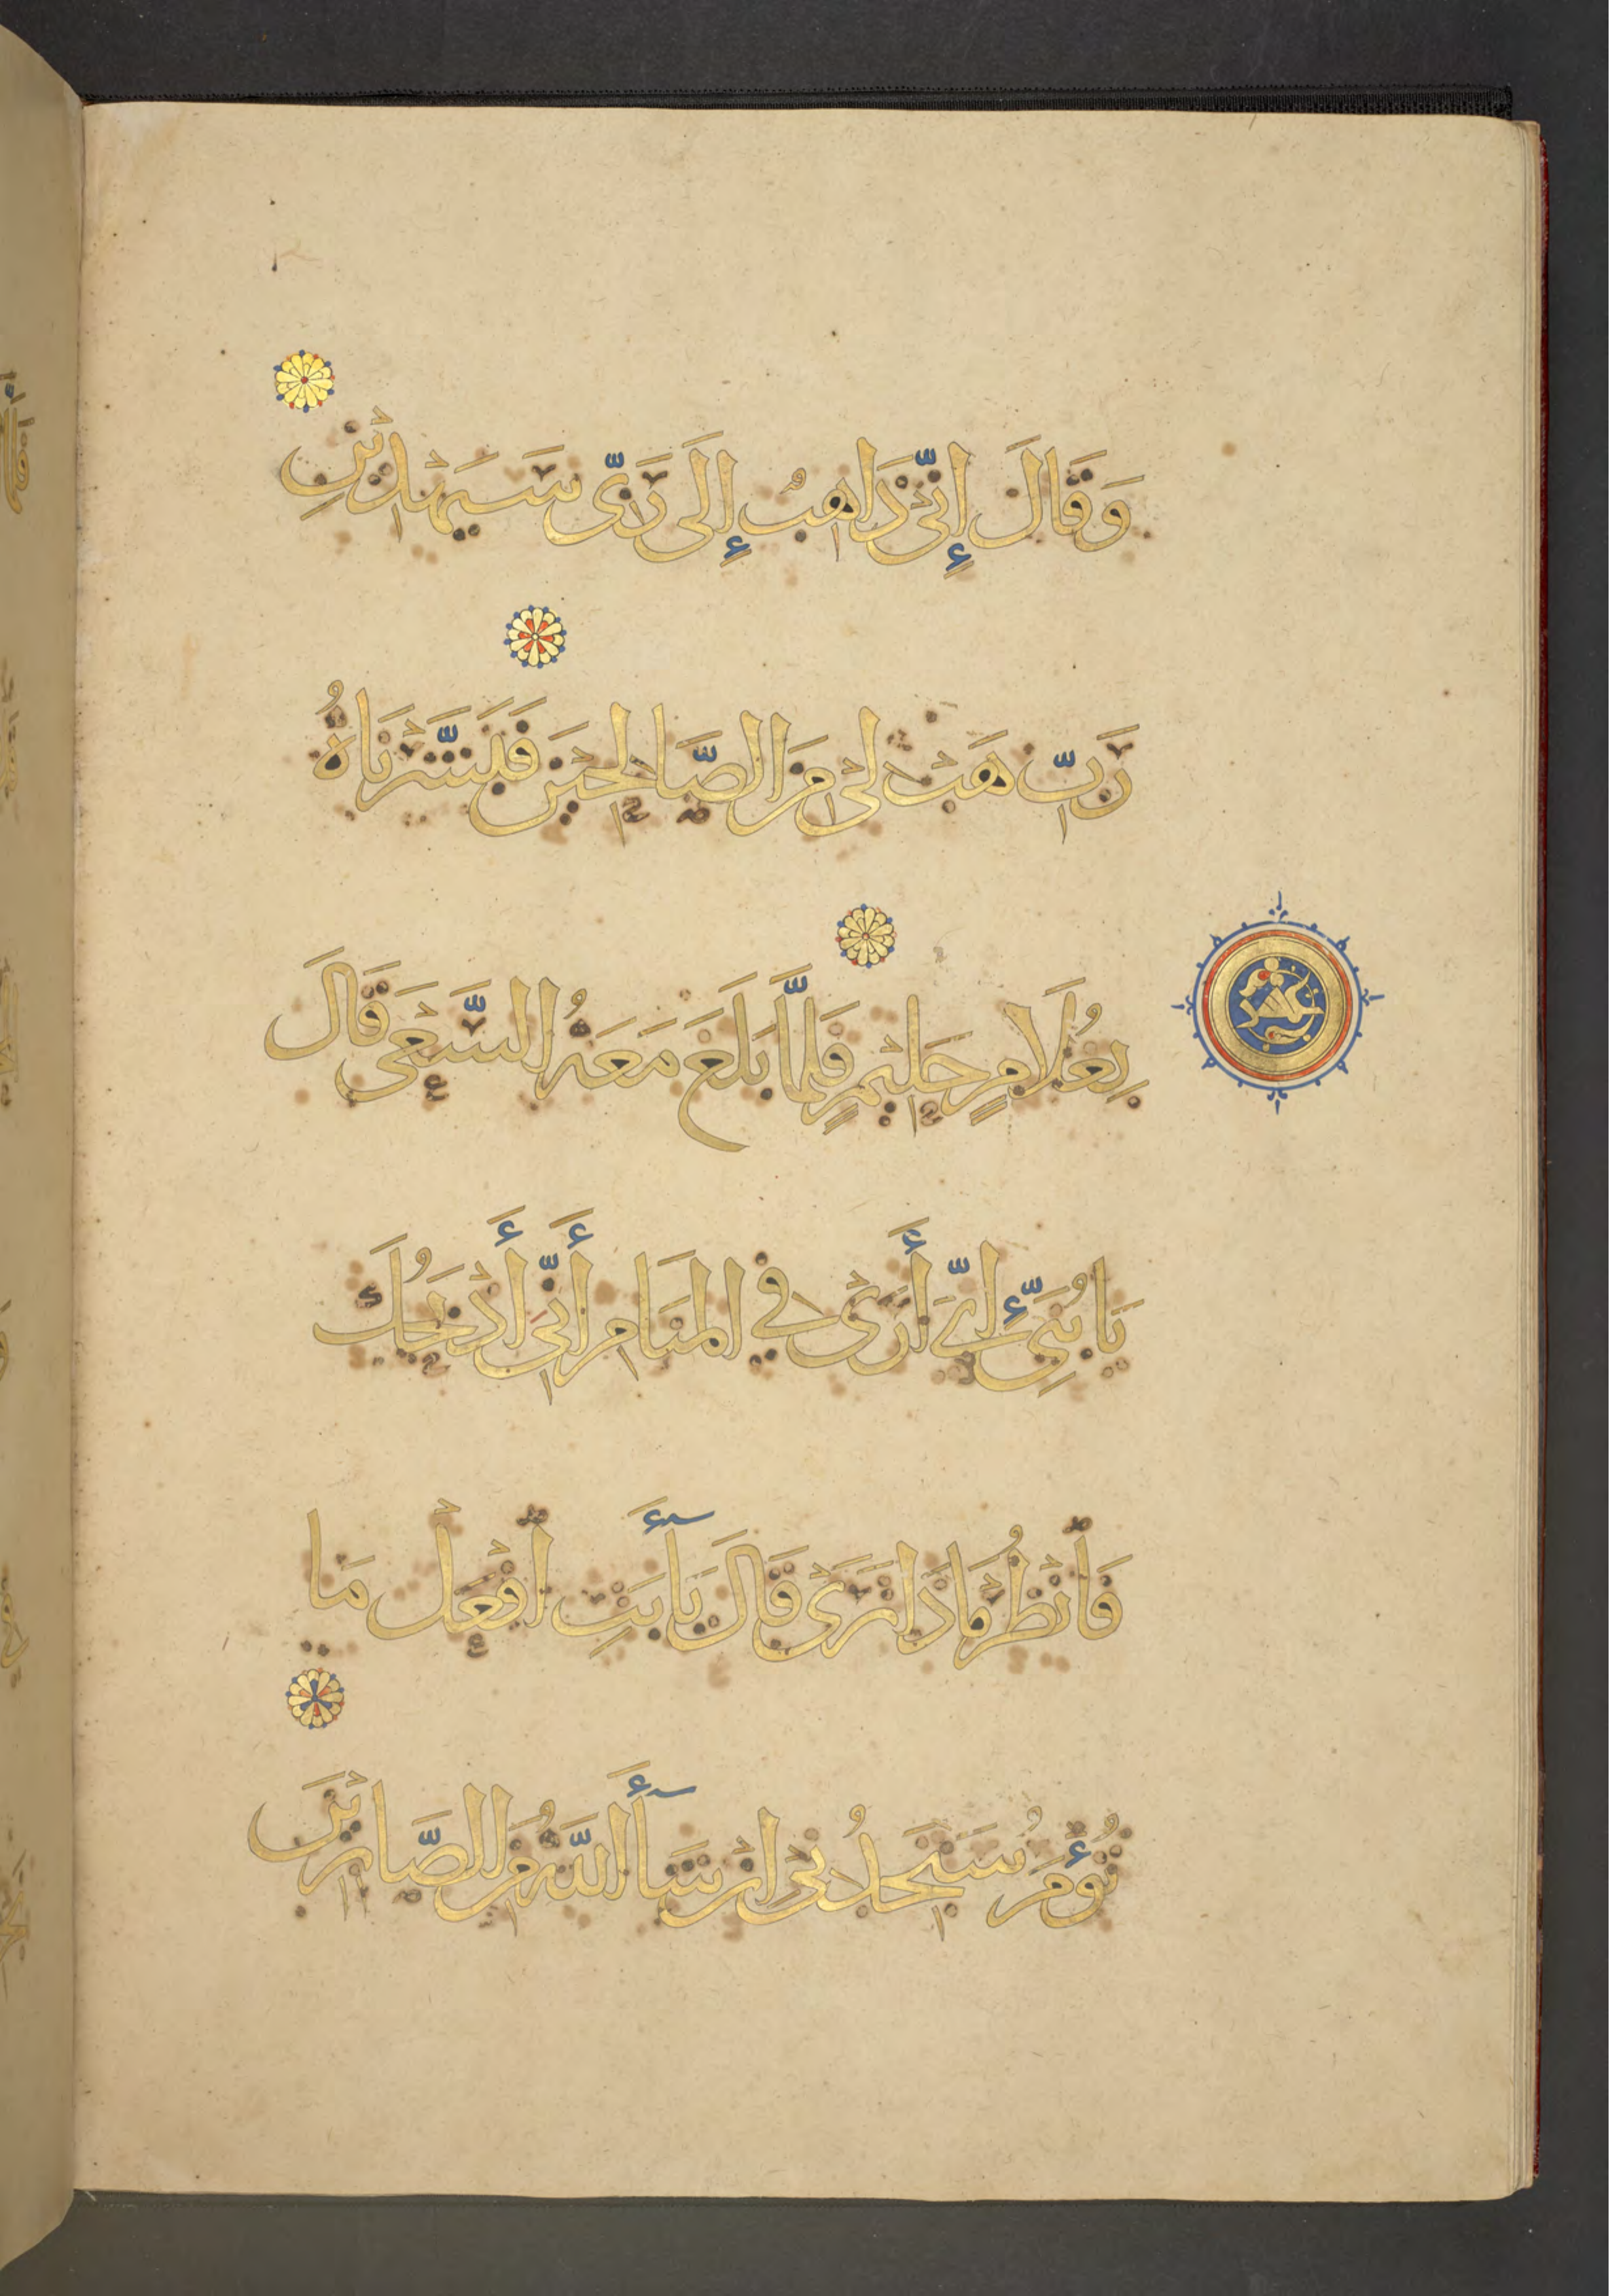 وَقَالَ إِنِّي ذَاهِبٌ إِلَى رَبِّي سَيَهْدِينِ
رَبِّ هَبْ لِي مِنَ الصَّالِحِينَ فَبَشَّرْنَاهُ
بِغُلَامٍ حَلِيمٍ فَلَمَّا بَلَغَ مَعَهُ السَّعْيَ قَالَ
يَا بُنَيَّ إِنِّي أَرَى فِي الْمَنَامِ أَنِّي أَذْبَحُكَ
فَانْظُرْ مَاذَا تَرَى قَالَ يَا أَبَتِ افْعَلْ مَا
تُؤْمَرُ سَتَجِدُنِي إِنْ شَاءَ اللَّهُ مِنَ الصَّابِرِينَ